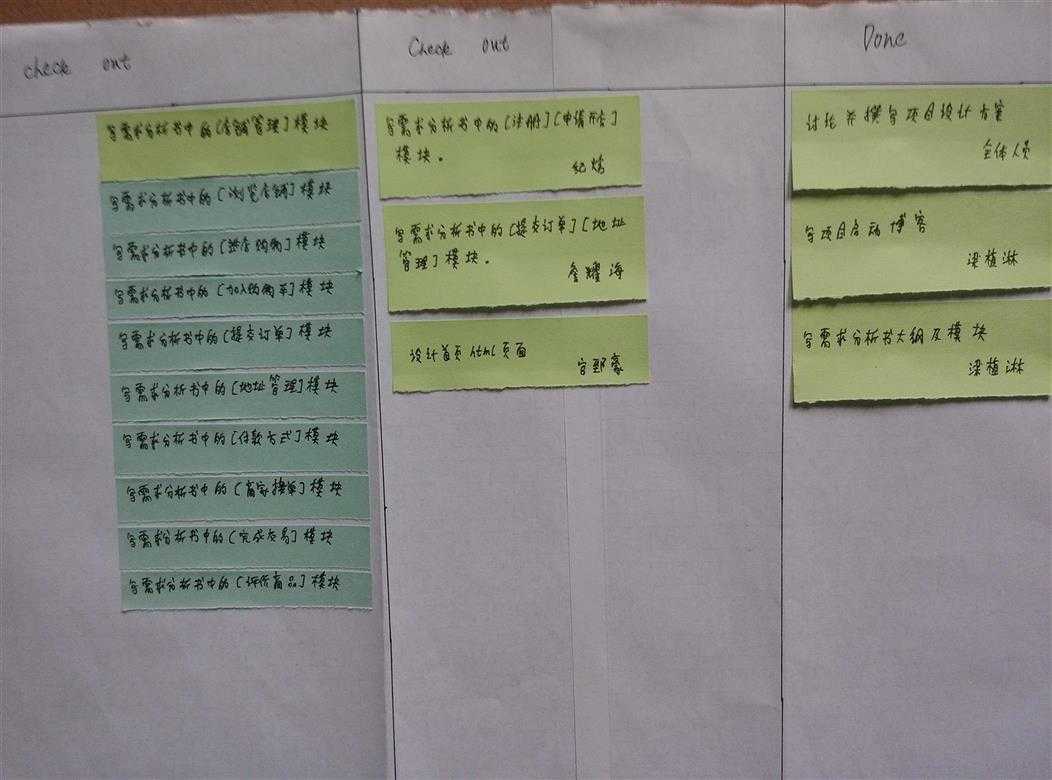 check out
写需求分析书中的[店铺管理]模块
写需求分析书中的[浏览店铺]模块
写需求分析书中的[进店购物]模块
写需求分析书中的[加入购物车]模块
写需求分析书中的[提交订单]模块
写需求分析书中的[地址管理]模块
写需求分析书中的[付款方式]模块
写需求分析书中的[商家接单]模块
写需求分析书中的[完成交易]模块
写需求分析书中的[评价商品]模块
Check out
写需求分析书中的[注册][申请开店]
模块。
写需求分析书中的[提交订单][地址
管理]模块。
耀海
设计首页html页面
Done
讨论并撰写项目设计方案
全体人员
写项目启动博客
梁植淋
写需求分析书大纲及模块
梁植淋